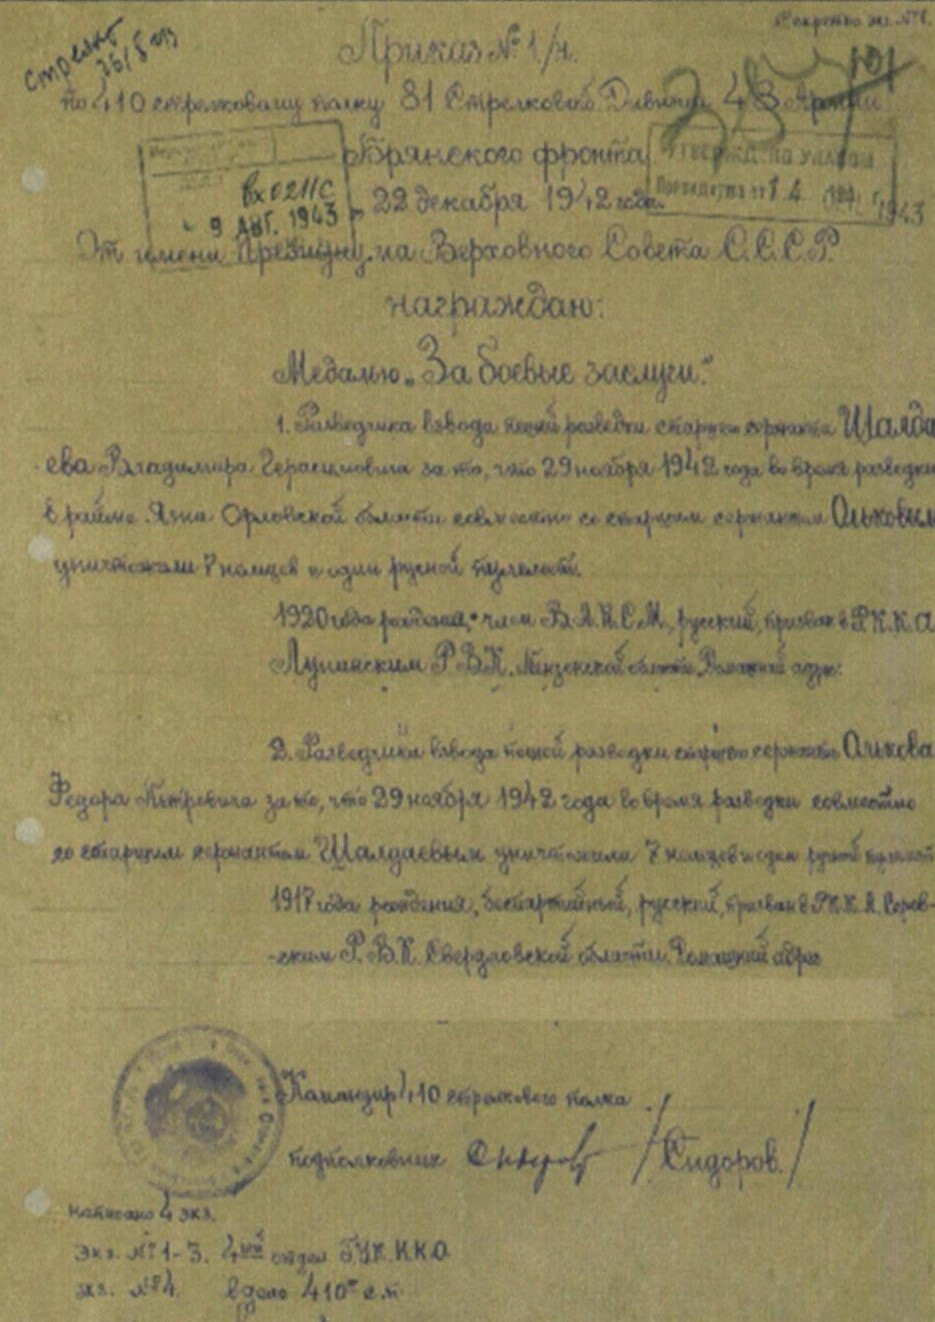 Секретно экз. №1.
Приказ № 1/н.
по 410 стрелковому полку 81 Стрелковой Дивизии 48 Армии
Брянского фронта
УТВЕРЖДЕНО УКАЗОМ
Президиума от 14 1943
вх 0211с
9 АВГ. 1943
22 декабря 1942 года.
От имени Президиума Верховного Совета С.С.С.Р.
награждаю:
Медалью „За боевые заслуги."
1. Разведчика взвода пешей разведки старшего сержанта Шалда
ева Владимира Герасимовича за то, что 29 ноября 1942 года во время разведки
в районе Орловской области совместно со старшим сержантом Ольковым
уничтожили 7 немцев и один ручной пулемет.
1920 года рождения, член В.Л.К.С.М., русский, призван в Р.К.К.А
Лунинским Р.В.К. Пензенской области. Домашний адрес:
2. Разведчика взвода пешей разведки старшего сержанта Олькова
Федора Петровича за то, что 29 ноября 1942 года во время разведки совместно
со старшим сержантом Шалдаевым уничтожили 7 немцев и один ручной пулемет
1917 года рождения, беспартийный, русский, призван в Р.К.К.А. Серов-
-ским Р.В.К. Свердловской области. Домашний адрес
Командир 410 стрелкового полка
подполковник /Сидоров./
написано 4 экз.
Экз. №1-3. отдел
экз. №4. в дело 410 с.п.